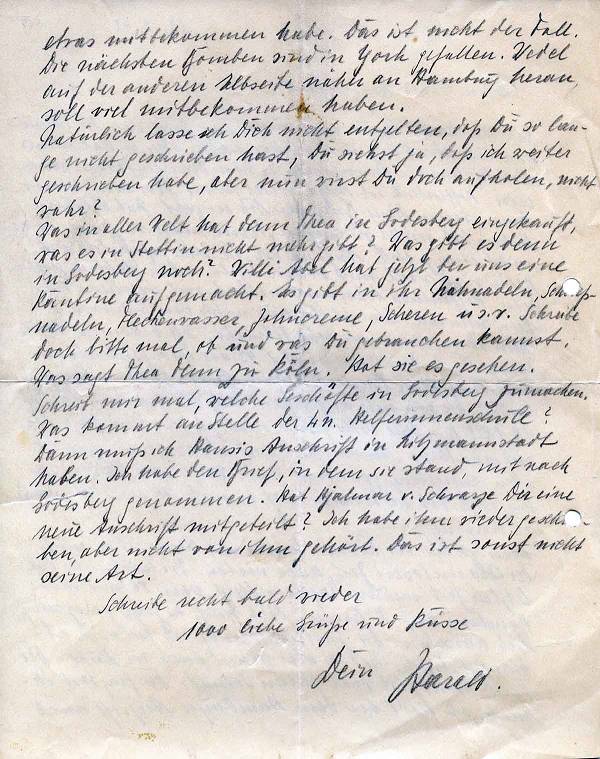 etwas mitbekommen habe. Das ist nicht der Fall.
Die nächsten Bomben sind in York gefallen. Wedel
auf der anderen Elbseite näher an Hamburg heran,
soll viel mitbekommen haben.
Natürlich lasse ich Dich nicht entgelten, daß Du so lan-
ge nicht geschrieben hast, Du siehst ja, daß ich weiter
geschrieben habe, aber nun wirst Du doch aufholen, nicht
wahr?
Was in aller Welt hat denn Thea in Godesberg eingekauft,
was es in Stettin nicht mehr gibt? Was gibt es denn
in Godesberg noch? Willi Abel hat jetzt bei uns eine
Kantine aufgemacht. Es gibt in ihr Nähnadeln,
nadeln, Fleckenwasser, Zahncreme, Scheren u.s.w. Schreibe
doch bitte mal, ob und was Du gebrauchen kannst.
Was sagt Thea denn zu Köln. Hat sie es gesehen.
Schreib mir mal, welche Geschäfte in Godesberg zumachen.
Was kommt an Stelle der Helferinnenschule?
Dann muß ich Hansis Anschrift in Litzmannstadt
haben. Ich habe den Brief, in dem sie stand, mit nach
Godesberg genommen. Hat Hjalmar v. Dir eine
neue Anschrift mitgeteilt? Ich habe ihm wieder geschrie-
ben, aber nicht von ihm gehört. Das ist sonst nicht
seine Art.
Schreibe recht bald wieder
1000 liebe Grüße und Küsse
Dein Harald.